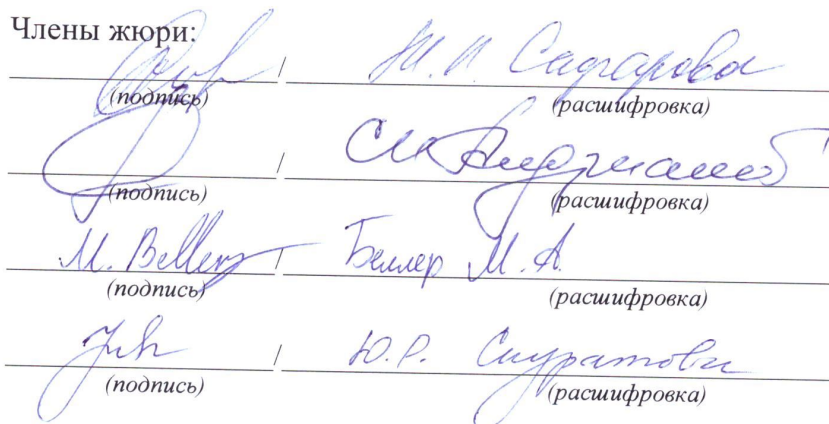 Члены жюри:
/ Сафарова
(подпись) (расшифровка)
/
(подпись) (расшифровка)
M. Beller / Беллер М. А.
(подпись) (расшифровка)
/ Ю.Р. Скуратова
(подпись) (расшифровка)